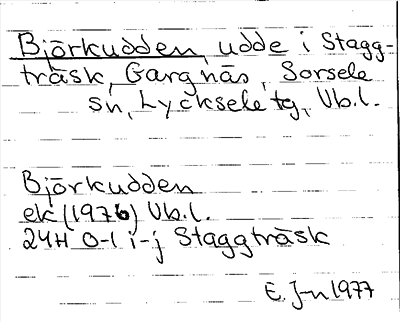 Björkudden, udde i Stagg-
träsk, Gargnäs, Sorsele
sn, Lycksele tg, Vb.l.
Björkudden
ek (1976) Vb.l.
24H 0-1 i-j Staggträsk
E. J-n 1977